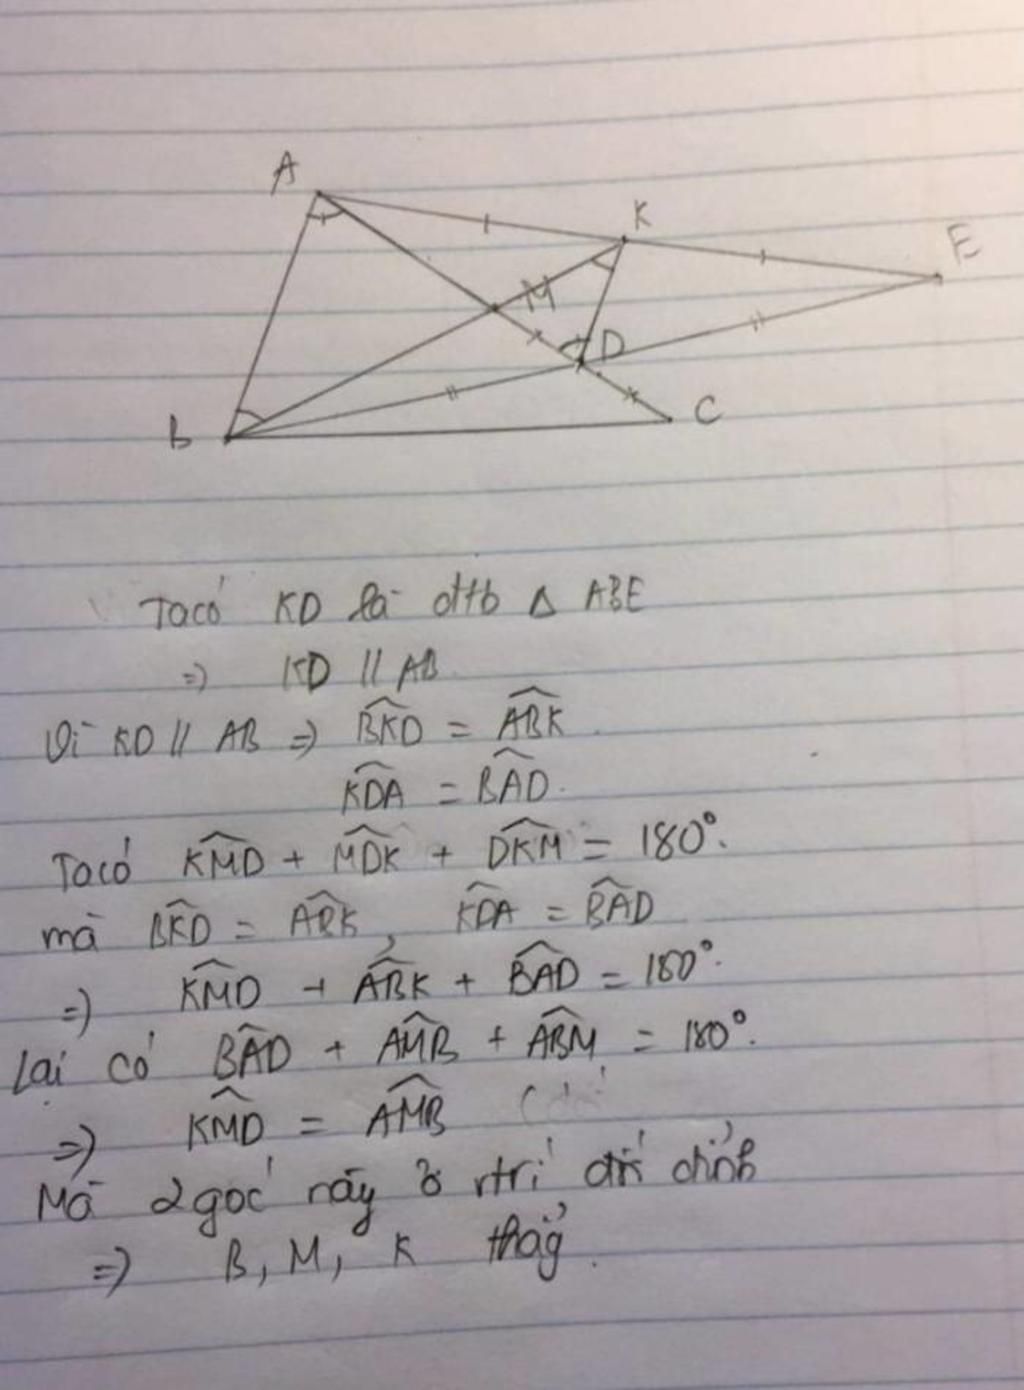 A
K
E
M
D
B
C
Ta có KD là đtb Δ ABE
=> KD // AB
Vì KD // AB => BKD̂ = ABK̂
KDÂ = BAD̂.
Ta có KMD̂ + MDK̂ + DKM̂ = 180°.
mà BKD̂ = ABK̂, KDÂ = BAD̂
=> KMD̂ + ABK̂ + BAD̂ = 180°.
Lại có BAD̂ + AMB̂ + ABM̂ = 180°.
=> KMD̂ = AMB̂
Mà 2 góc này ở vtrí đđ đỉnh
=> B, M, K thẳg.